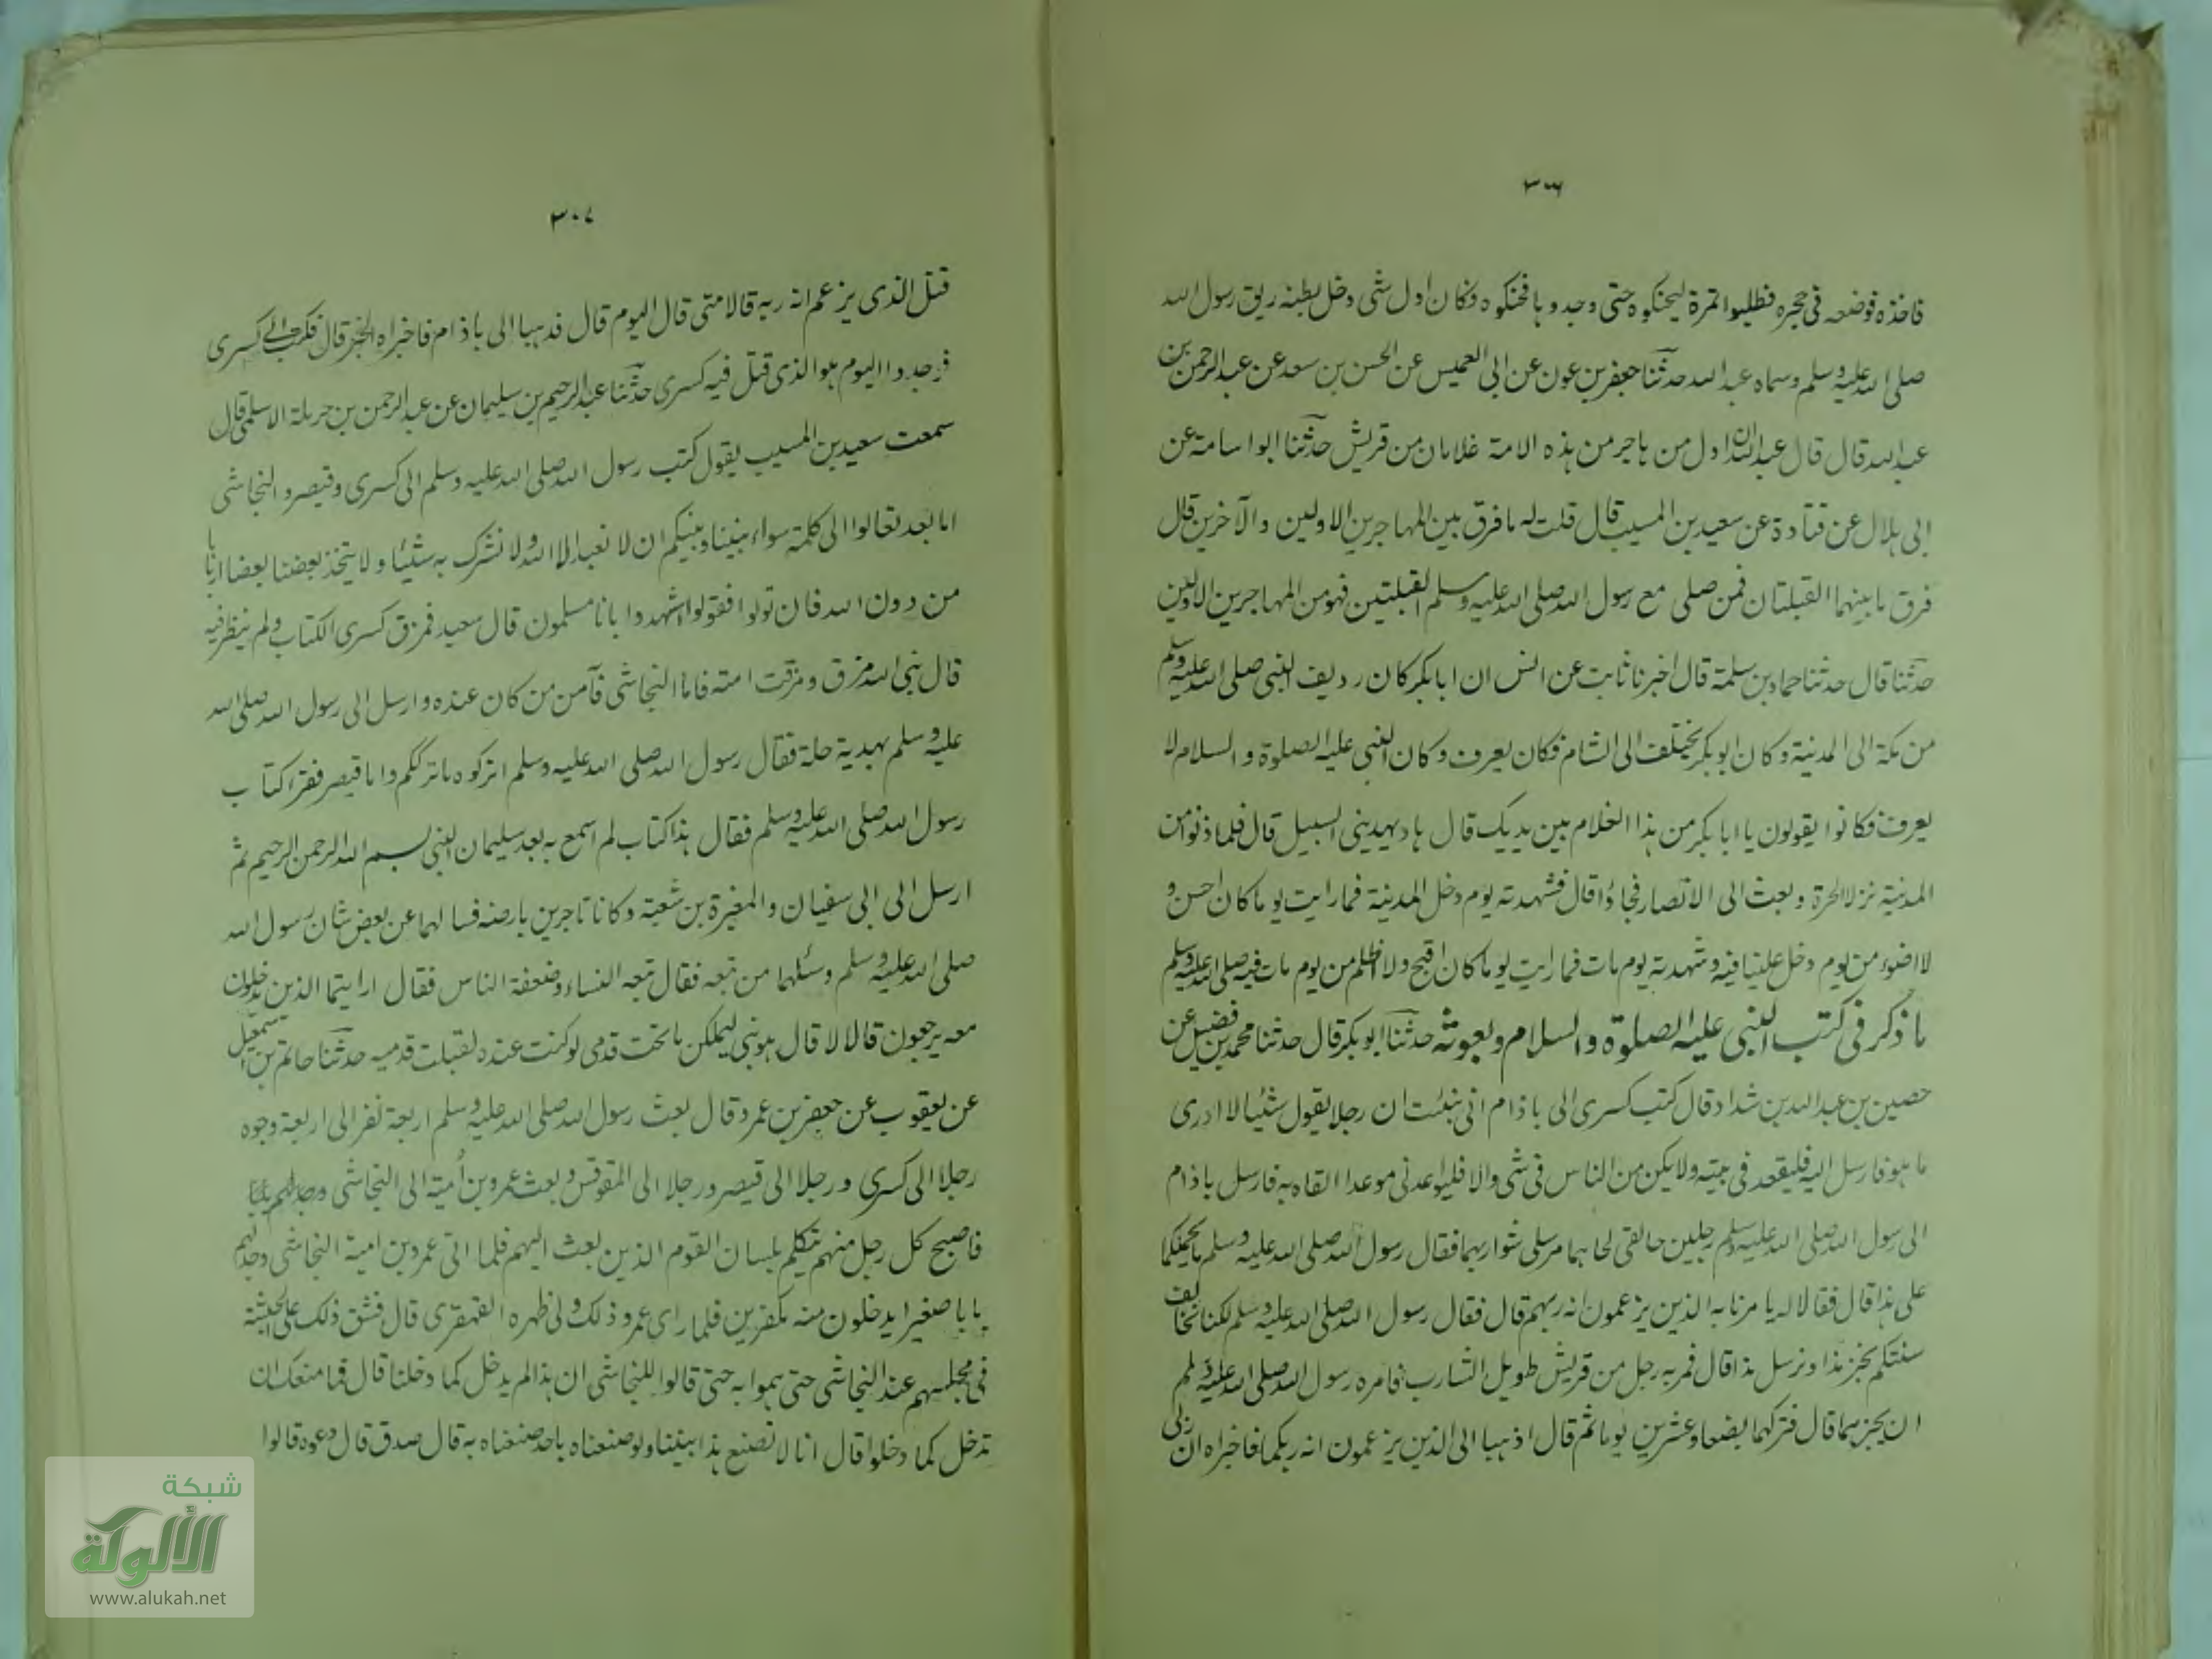 ٣٠٦
فاخذه فوضعه فى حجره فطلبوا تمرة ليحنكوه حتى وجدوها فحنكوه فكان اول شئ دخل بطنه ريق رسول الله
صلى الله عليه وسلم وسماه عبد الله حدثنا جعفر بن عون عن ابى العميس عن الحسن بن سعد عن عبد الرحمن بن
عبد الله قال قال عبد الله ان اول من هاجر من هذه الامة غلامان من قريش حدثنا ابو اسامة عن
ابى هلال عن قتادة عن سعيد بن المسيب قال قلت له ما فرق بين المهاجرين الاولين والآخرين قال
فرق ما بينهما القبلتان فمن صلى مع رسول الله صلى الله عليه وسلم القبلتين فهو من المهاجرين الاولين
حدثنا قال حدثنا حماد بن سلمة قال اخبرنا ثابت عن انس ان ابا بكر كان رديف النبى صلى الله عليه وسلم
من مكة الى المدينة وكان ابو بكر يختلف الى الشام فكان يعرف وكان النبى عليه الصلوة والسلام لا
يعرف فكانوا يقولون يا ابا بكر من هذا الغلام بين يديك قال هاد يهدينى السبيل قال فلما دنوا من
المدينة نزلا الحرة وبعث الى الانصار فجاؤا قال فشهدته يوم دخل المدينة فما رايت يوما كان احسن و
لا اضوء من يوم دخل علينا فيه وشهدته يوم مات فما رايت يوما كان اقبح ولا اظلم من يوم مات فيه صلى الله عليه وسلم
ما ذكر فى كتب النبى عليه الصلوة والسلام وبعوثه حدثنا ابو بكر قال حدثنا محمد بن فضيل عن
حصين بن عبد الله بن شداد قال كتب كسرى الى باذام انى نبئت ان رجلا يقول شئيا لا ادرى
ما هو فارسل اليه فليقعد فى بيته ولا يكن من الناس فى شئ والا فليواعدنى موعدا القاه به فارسل باذام
الى رسول الله صلى الله عليه وسلم رجلين حالقى لحاهما مرسلى شواربهما فقال رسول الله صلى الله عليه وسلم ما يحملكما
على هذا قال فقالا له يامرنا به الذين يزعمون انه ربهم قال فقال رسول الله صلى الله عليه وسلم لكنا نخالف
سنتكم نجز هذا ونرسل هذا قال فمر به رجل من قريش طويل الشارب فامره رسول الله صلى الله عليه وسلم
ان يجزهما قال فتركهما بضعا وعشرين يوما ثم قال اذهبا الى الذين يزعمون انه ربكما فاخبراه ان ربى
٣٠٧
قتل الذى يزعم انه ربه قالا متى قال اليوم قال فذهبا الى باذام فاخبراه الخبر قال فكتب الى كسرى
فوجدوا اليوم هو الذى قتل فيه كسرى حدثنا عبد الرحيم بن سليمان عن عبد الرحمن بن حرملة الاسلمى قال
سمعت سعيد بن المسيب يقول كتب رسول الله صلى الله عليه وسلم الى كسرى وقيصر والنجاشى
اما بعد تعالوا الى كلمة سواء بيننا وبينكم ان لا نعبد الا الله ولا نشرك به شئيا ولا يتخذ بعضنا بعضا اربابا
من دون الله فان تولوا فقولوا اشهدوا بانا مسلمون قال سعيد فمزق كسرى الكتاب ولم ينظر فيه
قال نبى الله مزق ومزقت امته فاما النجاشى فآمن من كان عنده وارسل الى رسول الله صلى الله
عليه وسلم بهدية حلة فقال رسول الله صلى الله عليه وسلم اتركوه ما ترككم واما قيصر فقرا كتاب
رسول الله صلى الله عليه وسلم فقال هذا كتاب لم اسمع به بعد سليمان النبى بسم الله الرحمن الرحيم ثم
ارسل الى ابى سفيان والمغيرة بن شعبة وكانا تاجرين بارضه فسالهما عن بعض شان رسول الله
صلى الله عليه وسلم وسئلهما من تبعه فقال تبعه النساء وضعفة الناس فقال ارايتما الذين يدخلون
معه يرجعون قالا لا قال هو نبى ليملكن ما تحت قدمى لو كنت عنده لقبلت قدميه حدثنا حاتم بن اسمعيل
عن يعقوب عن جعفر بن عمرو قال بعث رسول الله صلى الله عليه وسلم اربعة نفر الى اربعة وجوه
رجلا الى كسرى ورجلا الى قيصر ورجلا الى المقوقس وبعث عمرو بن أمية الى النجاشى
فاصبح كل رجل منهم يتكلم بلسان القوم الذين بعث اليهم فلما اتى عمرو بن امية النجاشى وجد لهم
بابا صغيرا يدخلون منه مكفرين فلما راى عمرو ذلك ولى ظهره القهقرى قال فشق ذلك على الحبشة
فى مجلسهم عند النجاشى حتى هموا به حتى قالوا للنجاشى ان هذا لم يدخل كما دخلنا قال فما منعك ان
تدخل كما دخلوا قال انا لا نصنع هذا بنبينا ولو صنعناه باحد صنعناه به قال صدق قال دعوه قالوا
شبكة
الألوكة
www.alukah.net